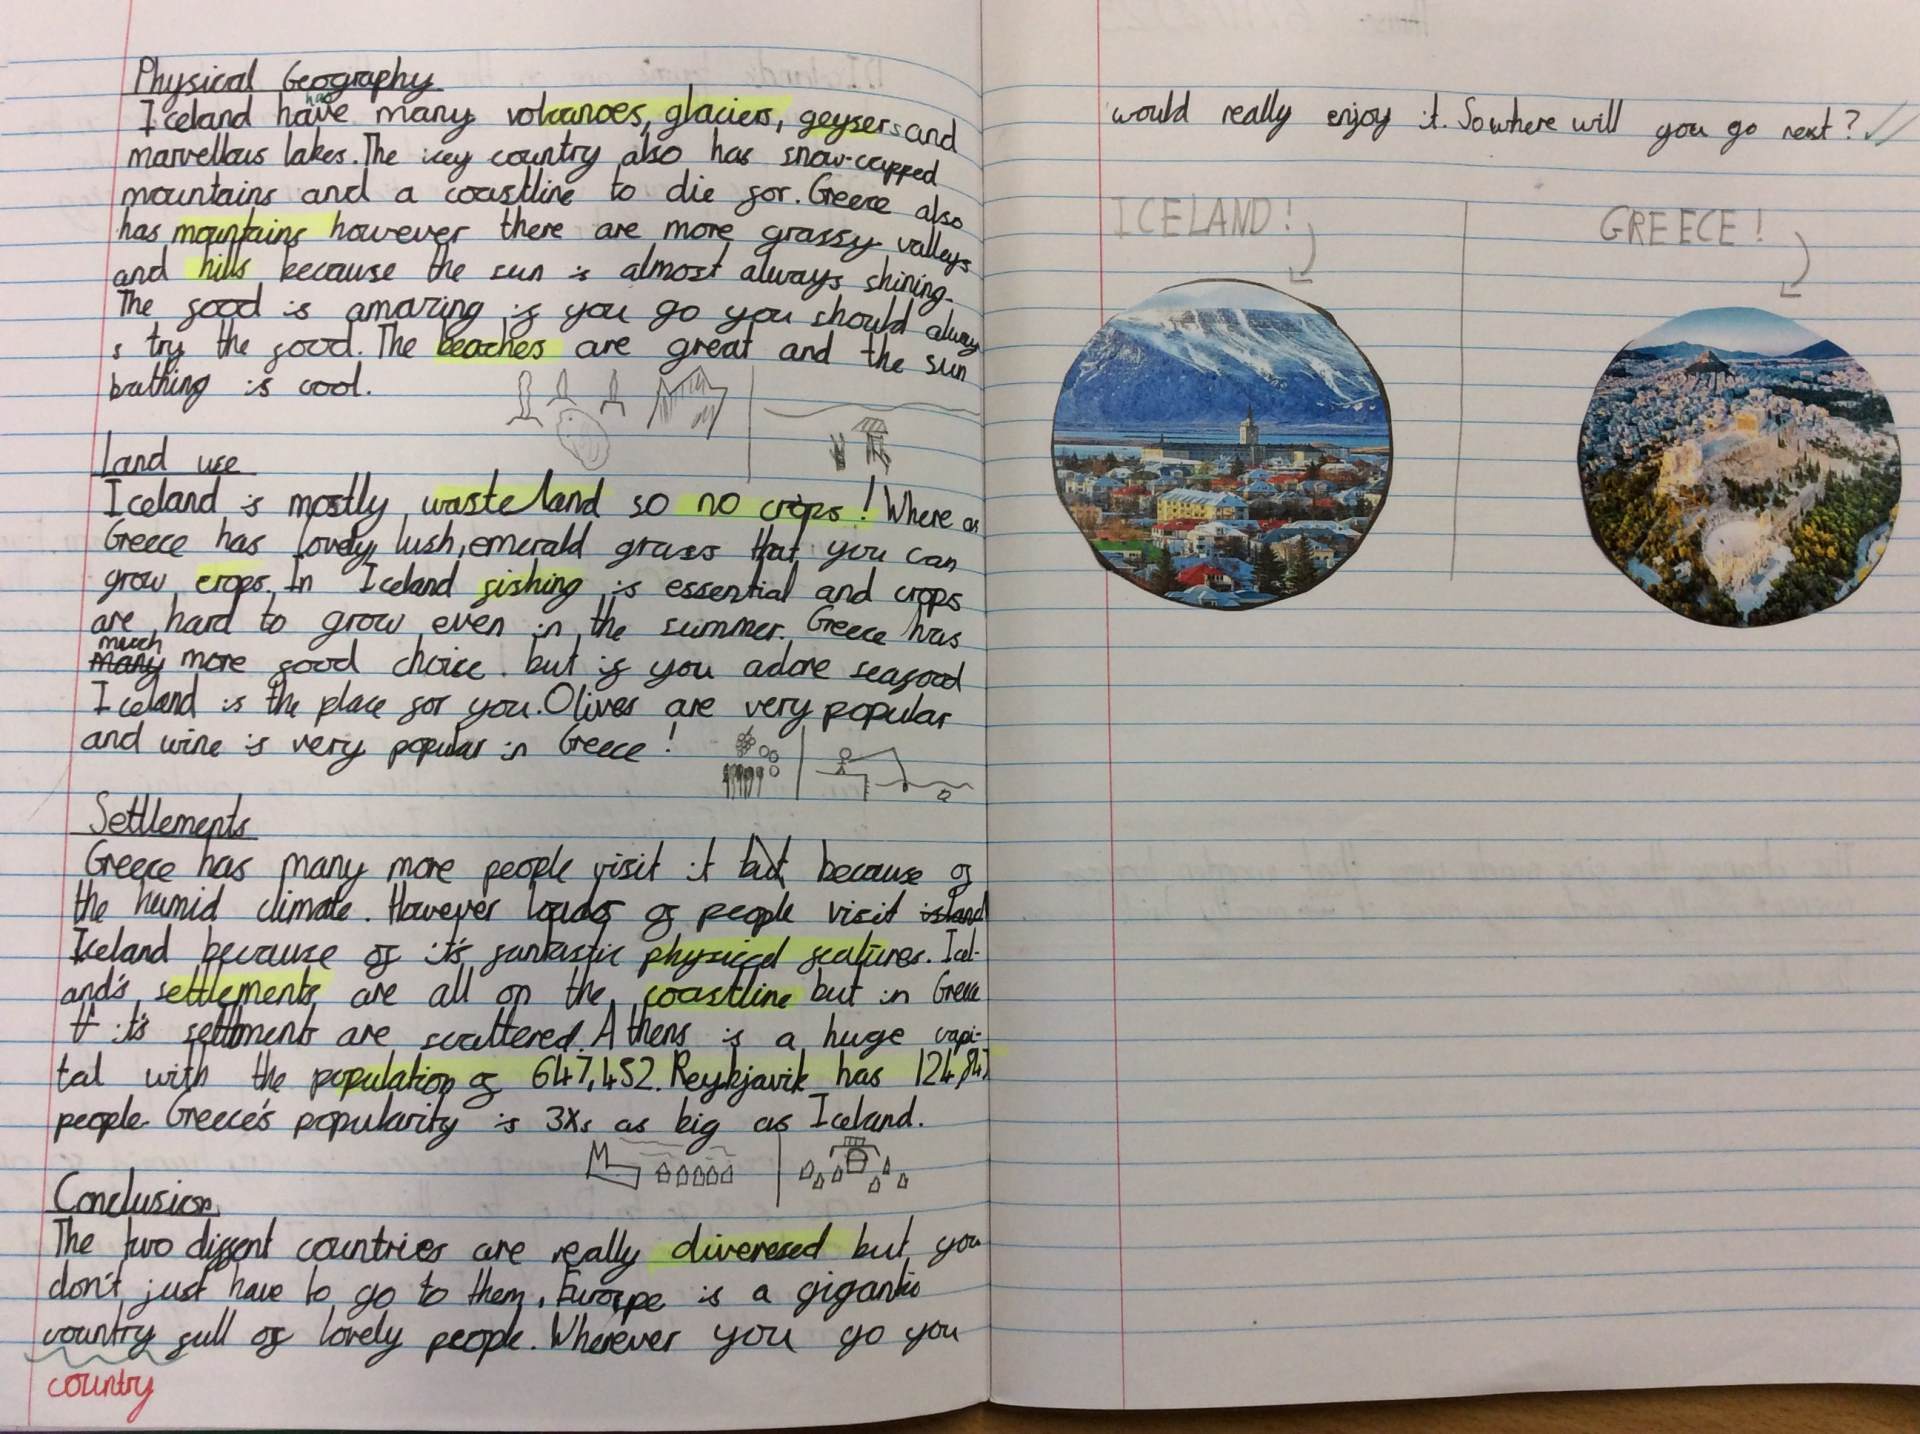 Physical Geography
has
Iceland have many volcanoes, glaciers, geysers and
marvellous lakes. The icey country also has snow-capped
mountains and a coastline to die for. Greece also
has mountains however there are more grassy valleys
and hills because the sun is almost always shining.
The food is amazing if you go you should alway
s try the food. The beaches are great and the sun
bathing is cool.
Land use
Iceland is mostly waste land so no crops! Where as
Greece has lovely lush, emerald grass that you can
grow crops. In Iceland fishing is essential and crops
are hard to grow even in the summer. Greece has
much
many more food choice. but if you adore seafood
Iceland is the place for you. Olives are very popular
and wine is very popular in Greece!
Settlements
Greece has many more people visit it but because of
the humid climate. However loads of people visit island
Iceland because of it's fantastic physical features. Icel-
and's settlements are all on the coastline but in Greece
it's settlments are scattered. Athens is a huge capi-
tal with the population of 647,452. Reykjavik has
people. Greece's popularity is 3xs as big as Iceland.
Conclusion
The two diffent countries are really diveresed but you
don't just have to go to them, Europe is a gigantic
country full of lovely people. Wherever you go you
country
would really enjoy it. So where will you go next?
ICELAND!
GREECE!